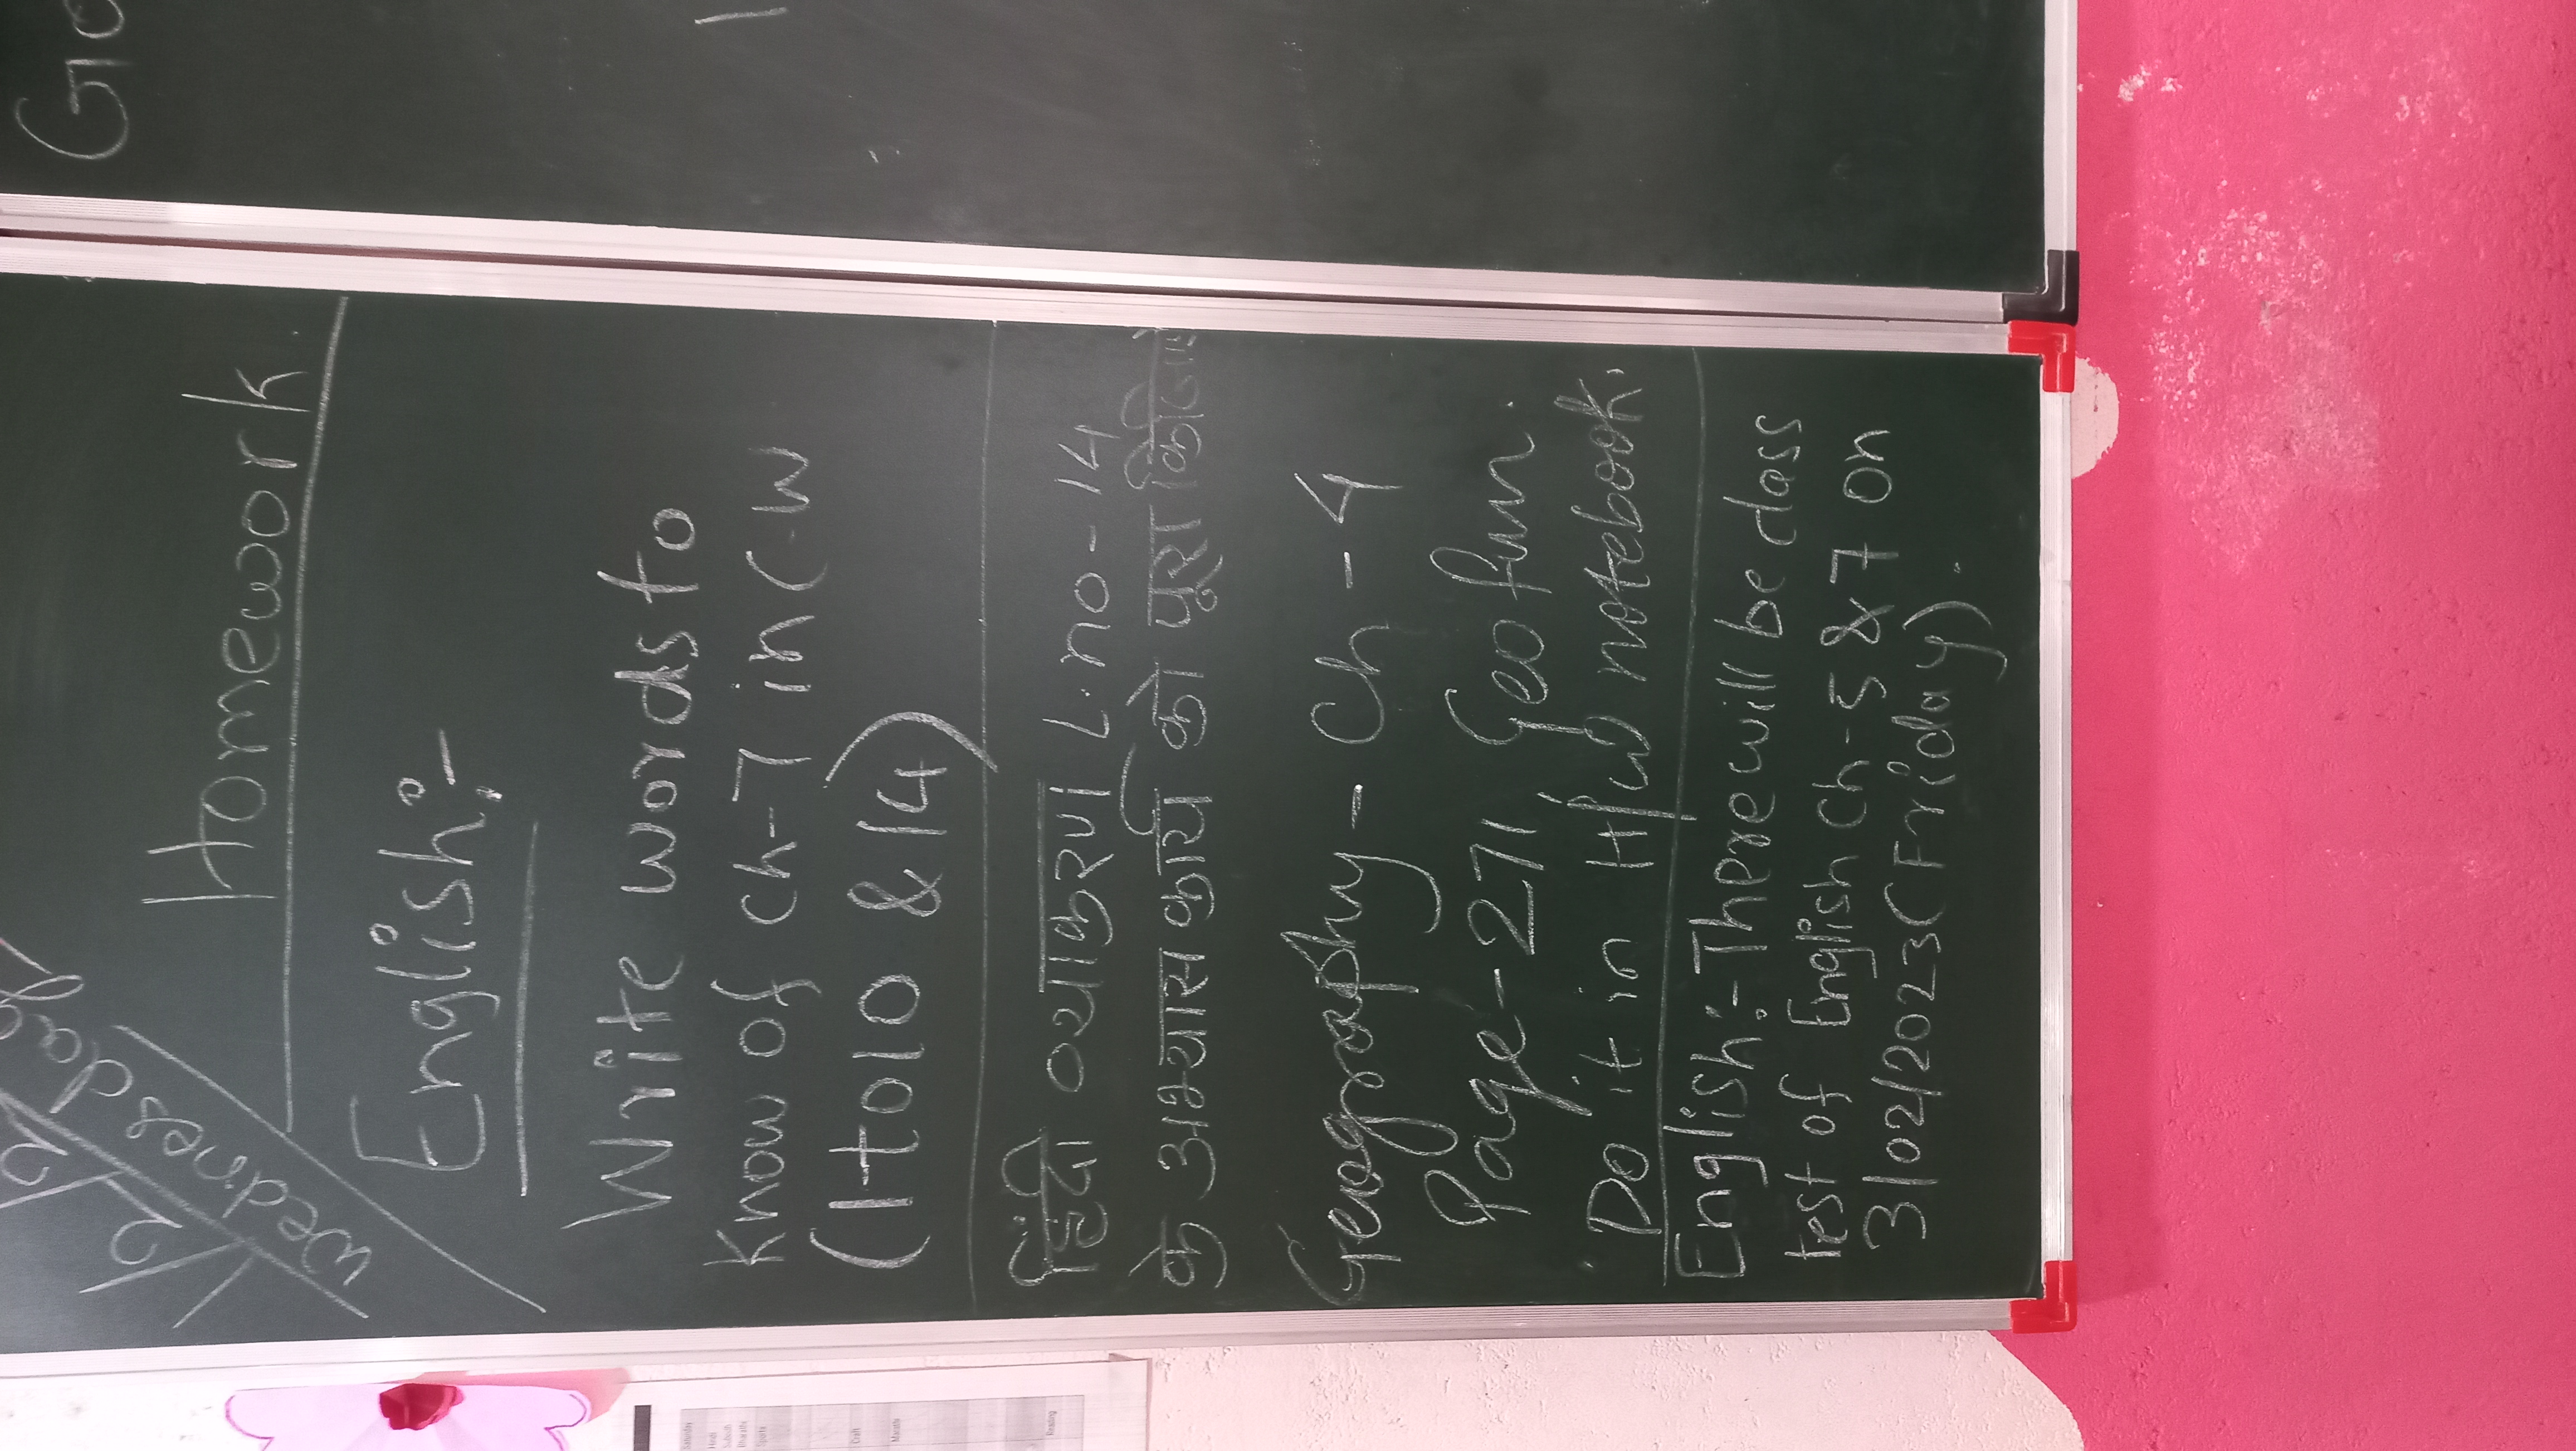 Wednesday
Homework
English:-
Write words to
Know of ch-7 in C.W
(1 to 10 & 14)
हिंदी व्याकरण L.no-14
के अभ्यास कार्य को पूरा किजिए
Geography - Ch - 4
Page-271, Geo fun.
Do it in H/W notebook.
English:- There will be class
test of English ch-5 & 7 on
3/02/2023 (Friday).
Hindi
Craft
Marathi
Reading